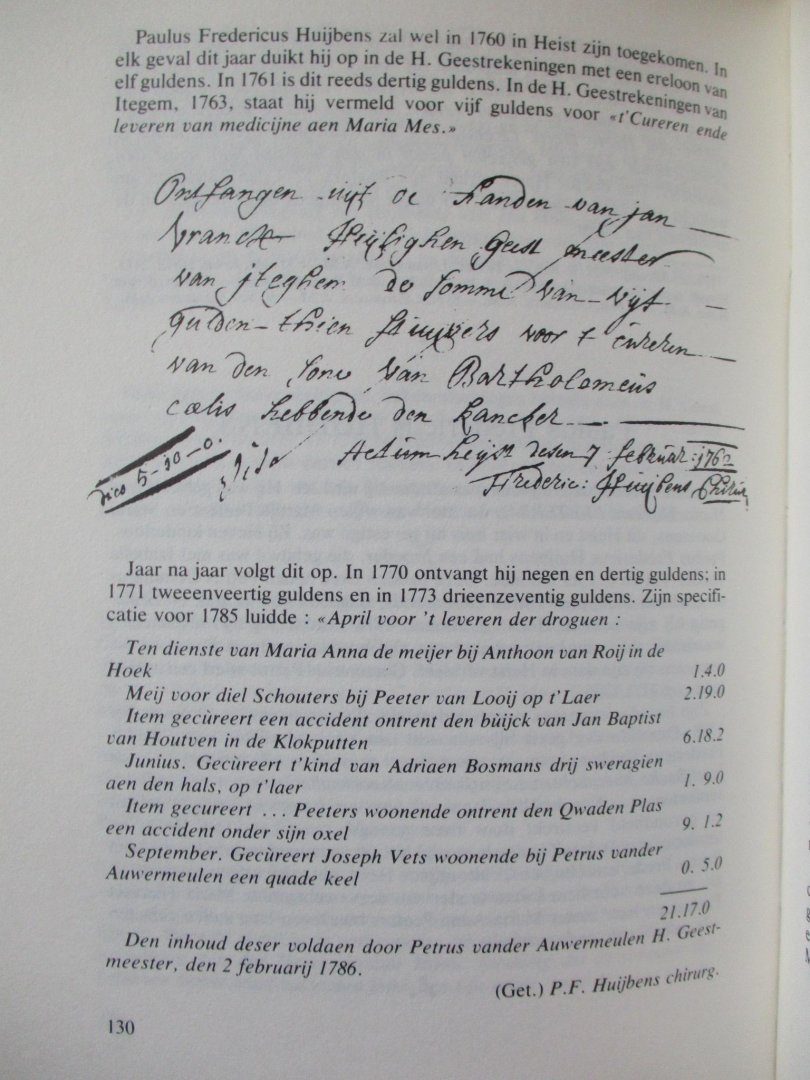 Paulus Fredericus Huijbens zal wel in 1760 in Heist zijn toegekomen. In
elk geval dit jaar duikt hij op in de H. Geestrekeningen met een ereloon van
elf guldens. In 1761 is dit reeds dertig guldens. In de H. Geestrekeningen van
Itegem, 1763, staat hij vermeld voor vijf guldens voor «t'Cureren ende
leveren van medicijne aen Maria Mes.»
Ontfangen uijt de handen van jan
vranck Heijlighen Geest meester
van jteghem de somme van vijf
gulden thien stuijvers voor t cureren
van den sone van Bartholomeus
cælis hebbende den kancker
Actum heijst desen 7 februar: 1762
dico 5-10-0.
Frederic: Huijbens Chirur
Jaar na jaar volgt dit op. In 1770 ontvangt hij negen en dertig guldens; in
1771 tweeenveertig guldens en in 1773 drieenzeventig guldens. Zijn specifi-
catie voor 1785 luidde : «April voor 't leveren der droguen :
Ten dienste van Maria Anna de meijer bij Anthoon van Roij in de
Hoek 1.4.0
Meij voor diel Schouters bij Peeter van Looij op t'Laer 2.19.0
Item gecùreert een accident ontrent den bùijck van Jan Baptist
van Houtven in de Klokputten 6.18.2
Junius. Gecùreert t'kind van Adriaen Bosmans drij sweragien
aen den hals, op t'laer 1. 9.0
Item gecureert ... Peeters woonende ontrent den Qwaden Plas
een accident onder sijn oxel 9. 1.2
September. Gecùreert Joseph Vets woonende bij Petrus vander
Auwermeulen een quade keel 0. 5.0
21.17.0
Den inhoud deser voldaen door Petrus vander Auwermeulen H. Geest-
meester, den 2 februarij 1786.
(Get.) P.F. Huijbens chirurg.
130